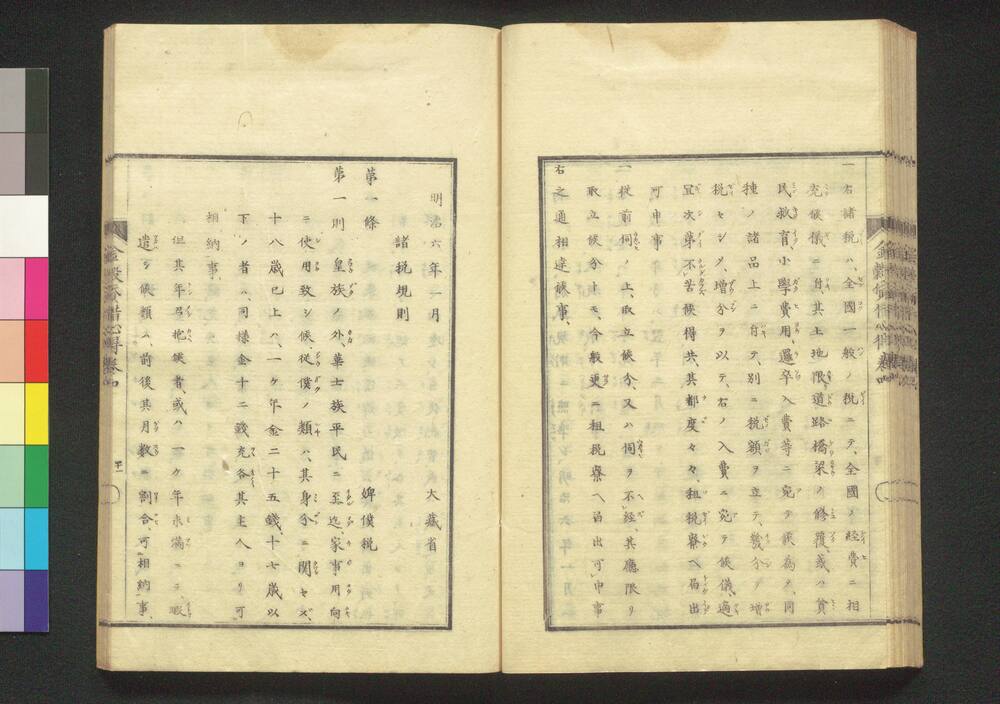 一右諸税ハ、全國一般ノ税ニテ、全國ノ經費ニ相
充候儀ニ付、其土地限、道路橋梁ノ修覆、或ハ貧
民救育小學費用、邏卒入費等ニ宛テ候為メ、同
種ノ諸品上ニ有テ、別ニ税額ヲ立テ、幾分ノ増
税セシメ、増分ヲ以テ、右ノ入費ニ宛テ候儀、適
宜次第不苦候得共、其都度々々、租税寮ヘ届出
可申事
一從前伺ノ上、取立候分、又ハ伺ヲ不經、其廳限リ
取立候分トモ、今般更ニ租税寮ヘ届出可申事
右之通相違候事、
明治六年一月 大藏省
諸税規則
第一條 婢僕税
第一則 皇族ノ外、華士族平民ニ至迄、家事用向
ニ使用致シ候、從僕ノ類ハ、其身分ニ関セズ、
十八歳已上ハ、一ケ年金二十五錢、十七歳以
下ノ者ハ、同樣金十二錢充各其主人ヨリ可
相納事、
但其年召抱候者、或ハ一ケ年未滿ニテ、暇
遣シ候類ハ、前後其月数ニ割合、可相納事、